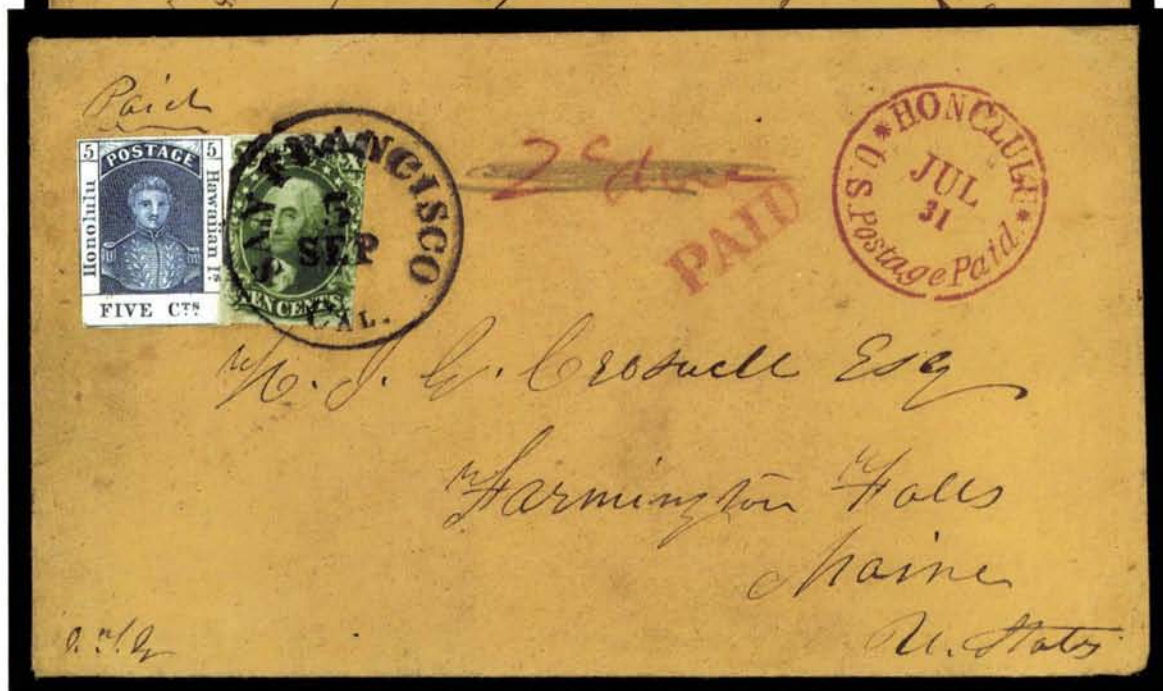 Paid
5 POSTAGE 5
Honolulu
Hawaiian Is
FIVE CTS
TEN CENTS
SAN FRANCISCO
5
SEP
CAL.
2c due
PAID
HONOLULU
JUL
31
U.S. Postage Paid
J. G. Croswell Esq
Farmington Falls
Maine
U. States